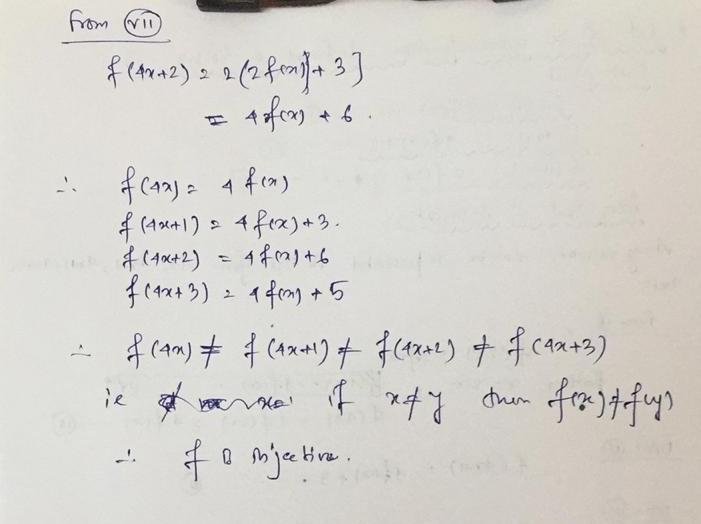 From (VII)
f(4x+2) = 2(2f(x)] + 3]
= 4f(x) + 6.
∴ f(4x) = 4 f(x)
f(4x+1) = 4 f(x)+3.
f(4x+2) = 4 f(x)+6
f(4x+3) = 4 f(x) + 5
∴ f(4x) ≠ f(4x+1) ≠ f(4x+2) ≠ f(4x+3)
ie if x≠y then f(x)≠f(y)
∴ f is injective.